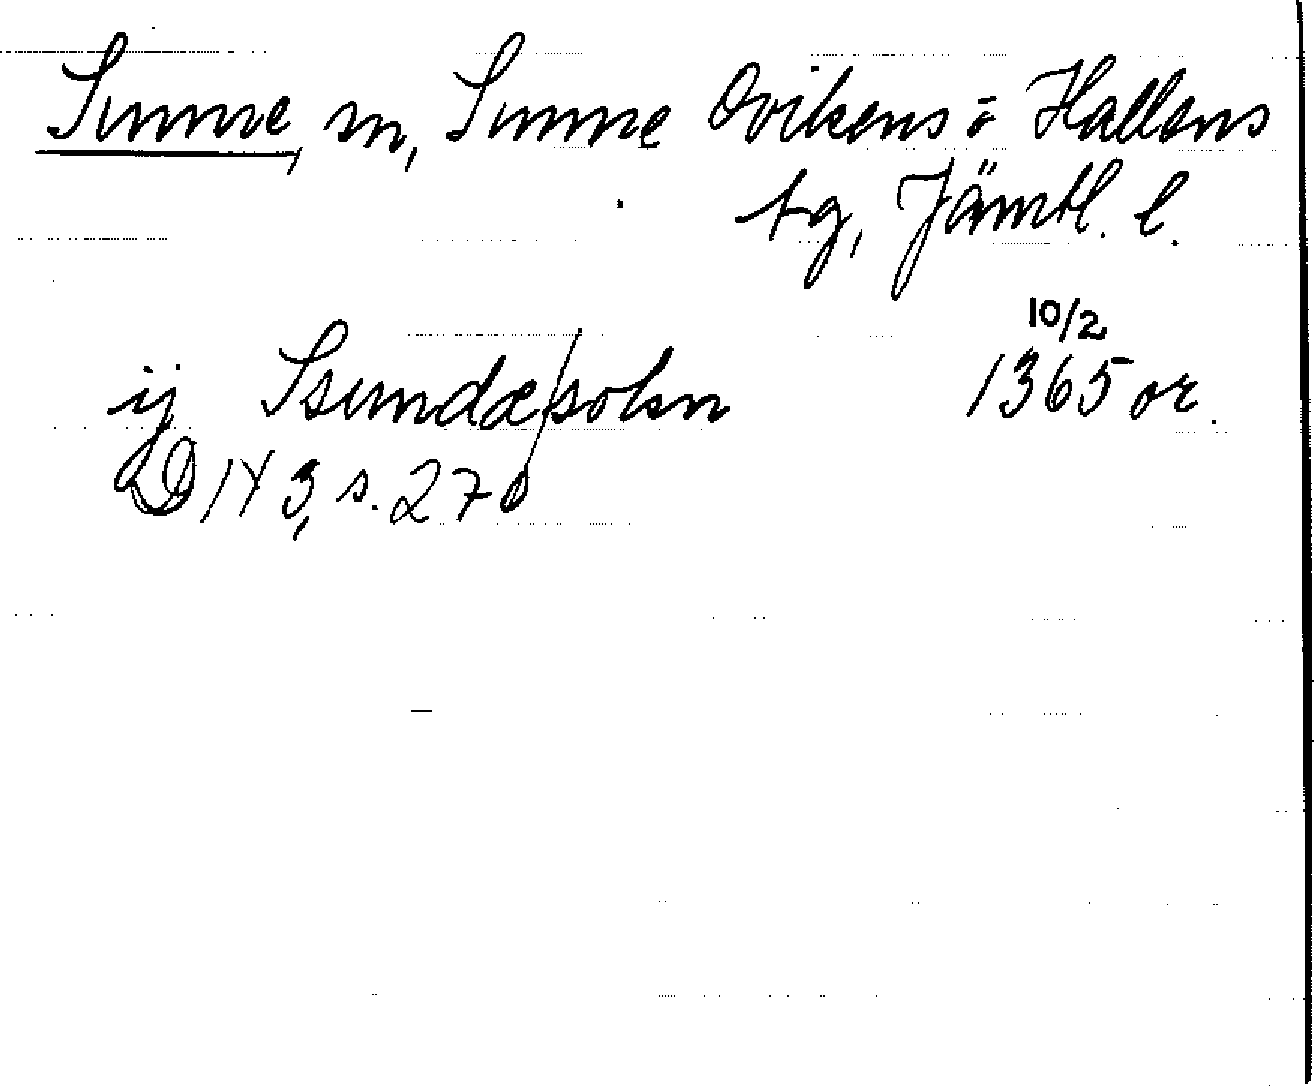 Sunne, sn, Sunne Ovikens o Hallens
tg, Jämtl. l.
10/2
ij Ssundæ/sokn 1365 or.
DN 3, s. 270